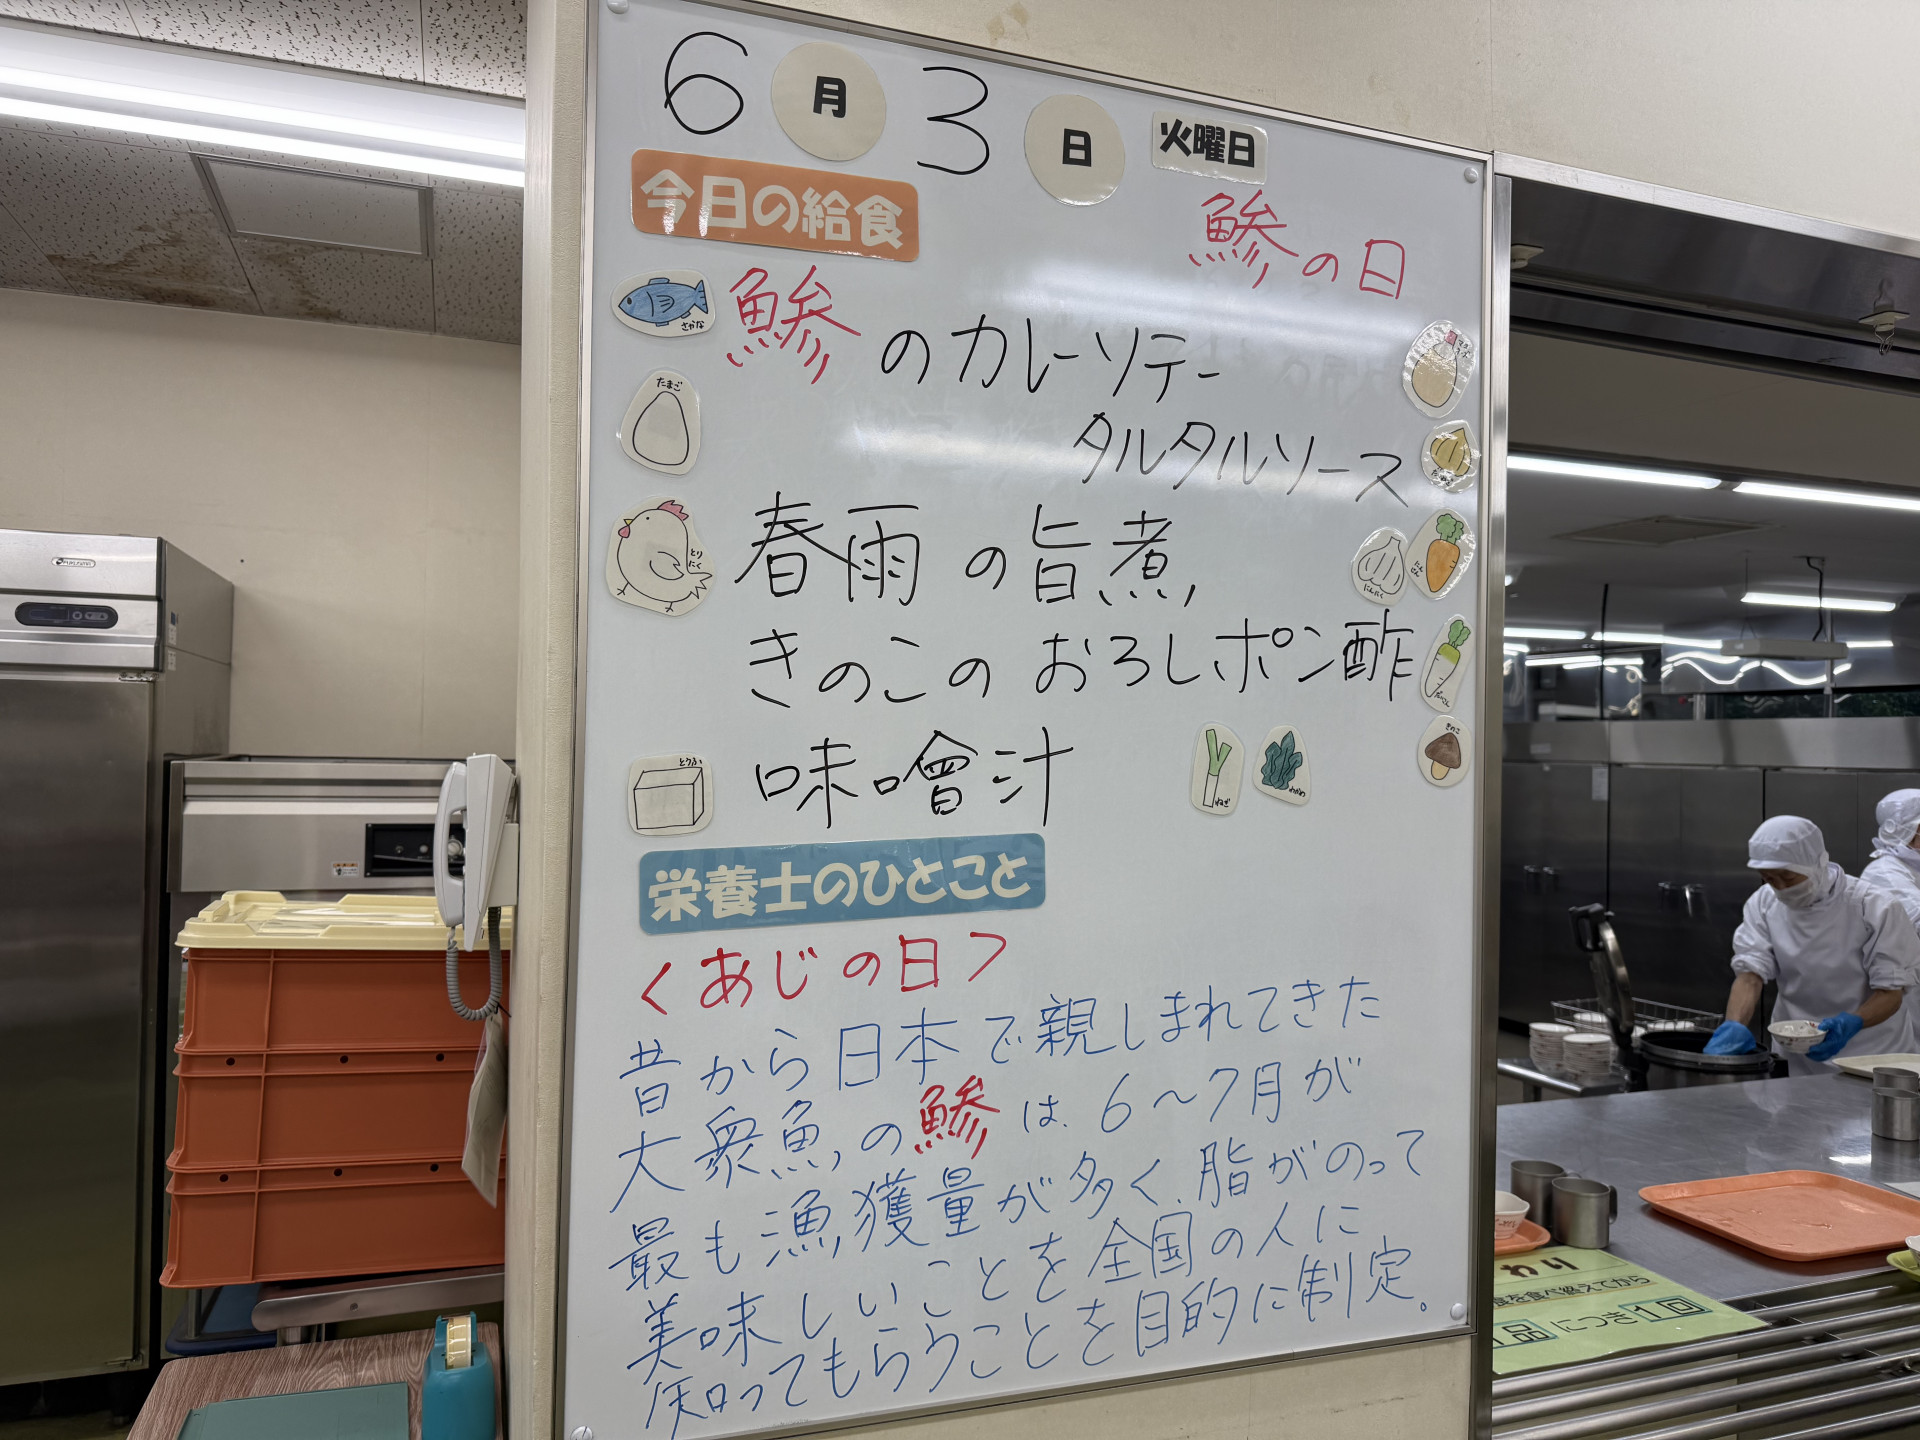 6月3日 火曜日
今日の給食
鯵の日
さかな
鯵のカレーソテー
マヨネーズ
たまご
タルタルソース
たまねぎ
とりにく
春雨の旨煮
にんにく
にんじん
きのこのおろしポン酢
だいこん
きのこ
とうふ
味噌汁
ねぎ
わかめ
栄養士のひとこと
<あじの日>
昔から日本で親しまれてきた
大衆魚の鯵は、6〜7月が
最も漁獲量が多く、脂がのって
美味しいことを全国の人に
知ってもらうことを目的に制定。
わり
食を食べ終えてから
1品につき1回